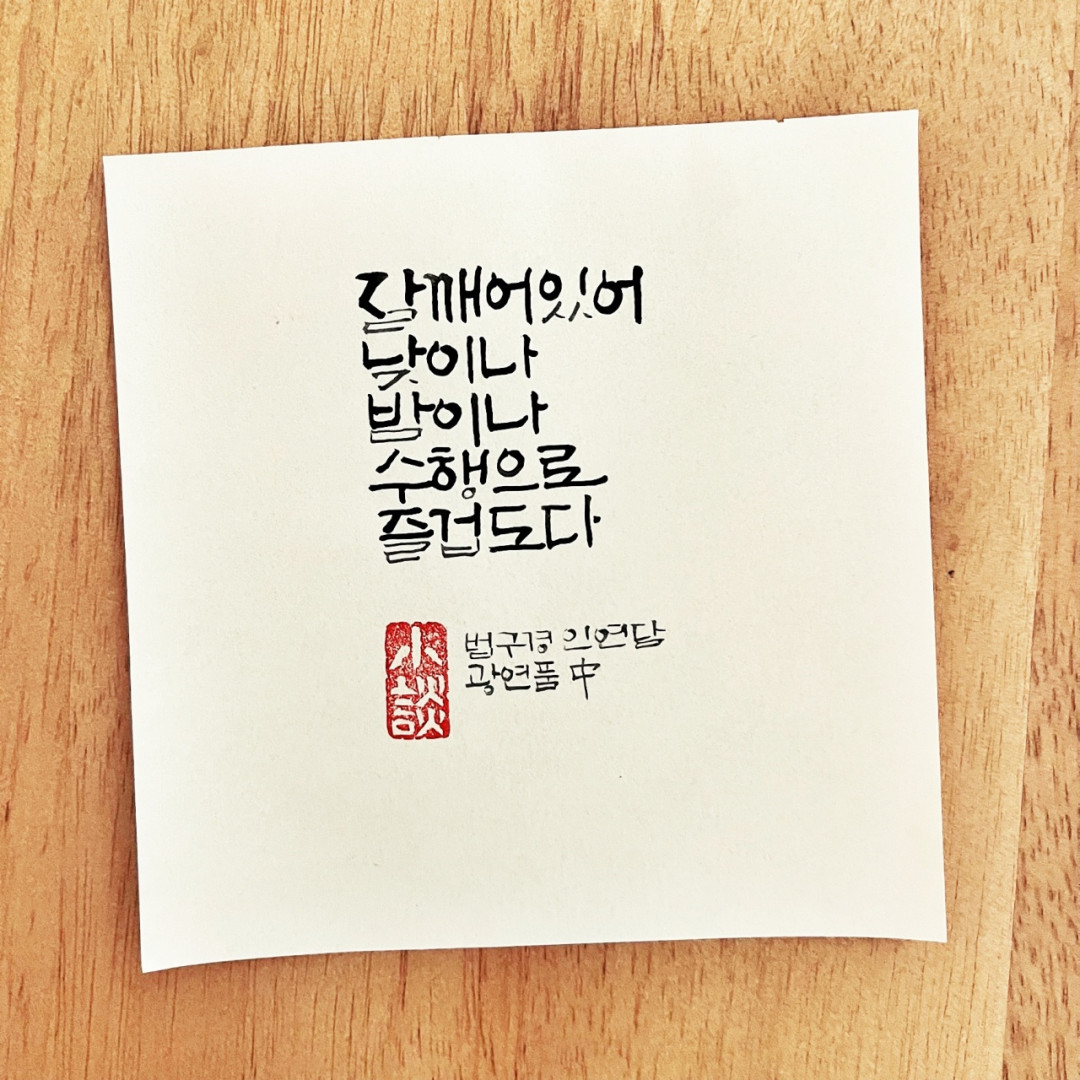 잘깨어있어
낮이나
밤이나
수행으로
즐겁도다
小談
법구경 인연담
광연품 中